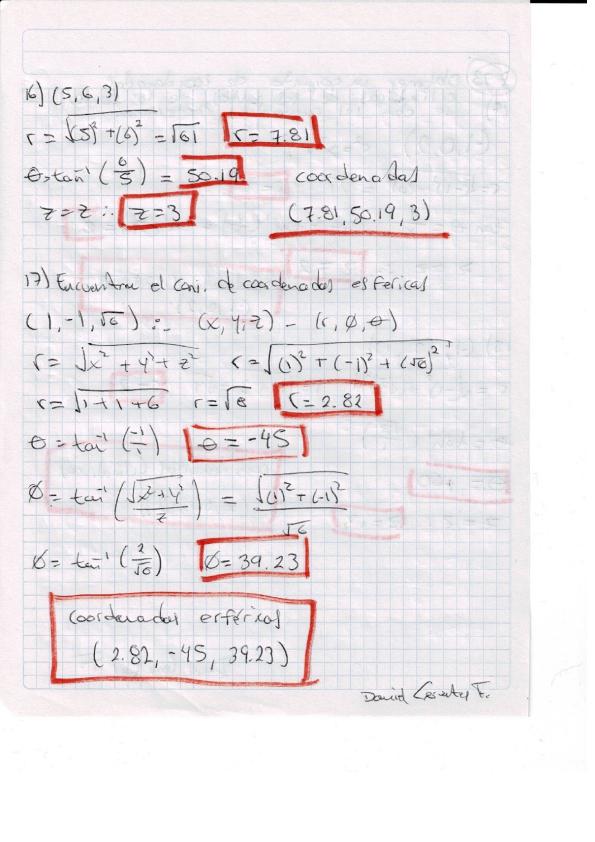 16] (5,6,3)
r = √(5)² + (6)² = √61 r = 7.81
θ = tan⁻¹ (6/5) = 50.19 coordenadas
z = z ∴ z = 3 (7.81, 50.19, 3)
17) Encuentra el conj. de coordenadas esfericas
(1, -1, √6) ∴ (x, y, z) - (r, Ø, θ)
r = √x² + y² + z² r = √(1)² + (-1)² + (√6)²
r = √1 + 1 + 6 r = √8 r = 2.82
θ = tan⁻¹ (-1/1) θ = -45
Ø = tan⁻¹ (√x² + y²/z) = √(1)² + (-1)²/√6
Ø = tan⁻¹ (2/√6) Ø = 39.23
coordenadas esféricas
(2.82, -45, 39.23)
David F.